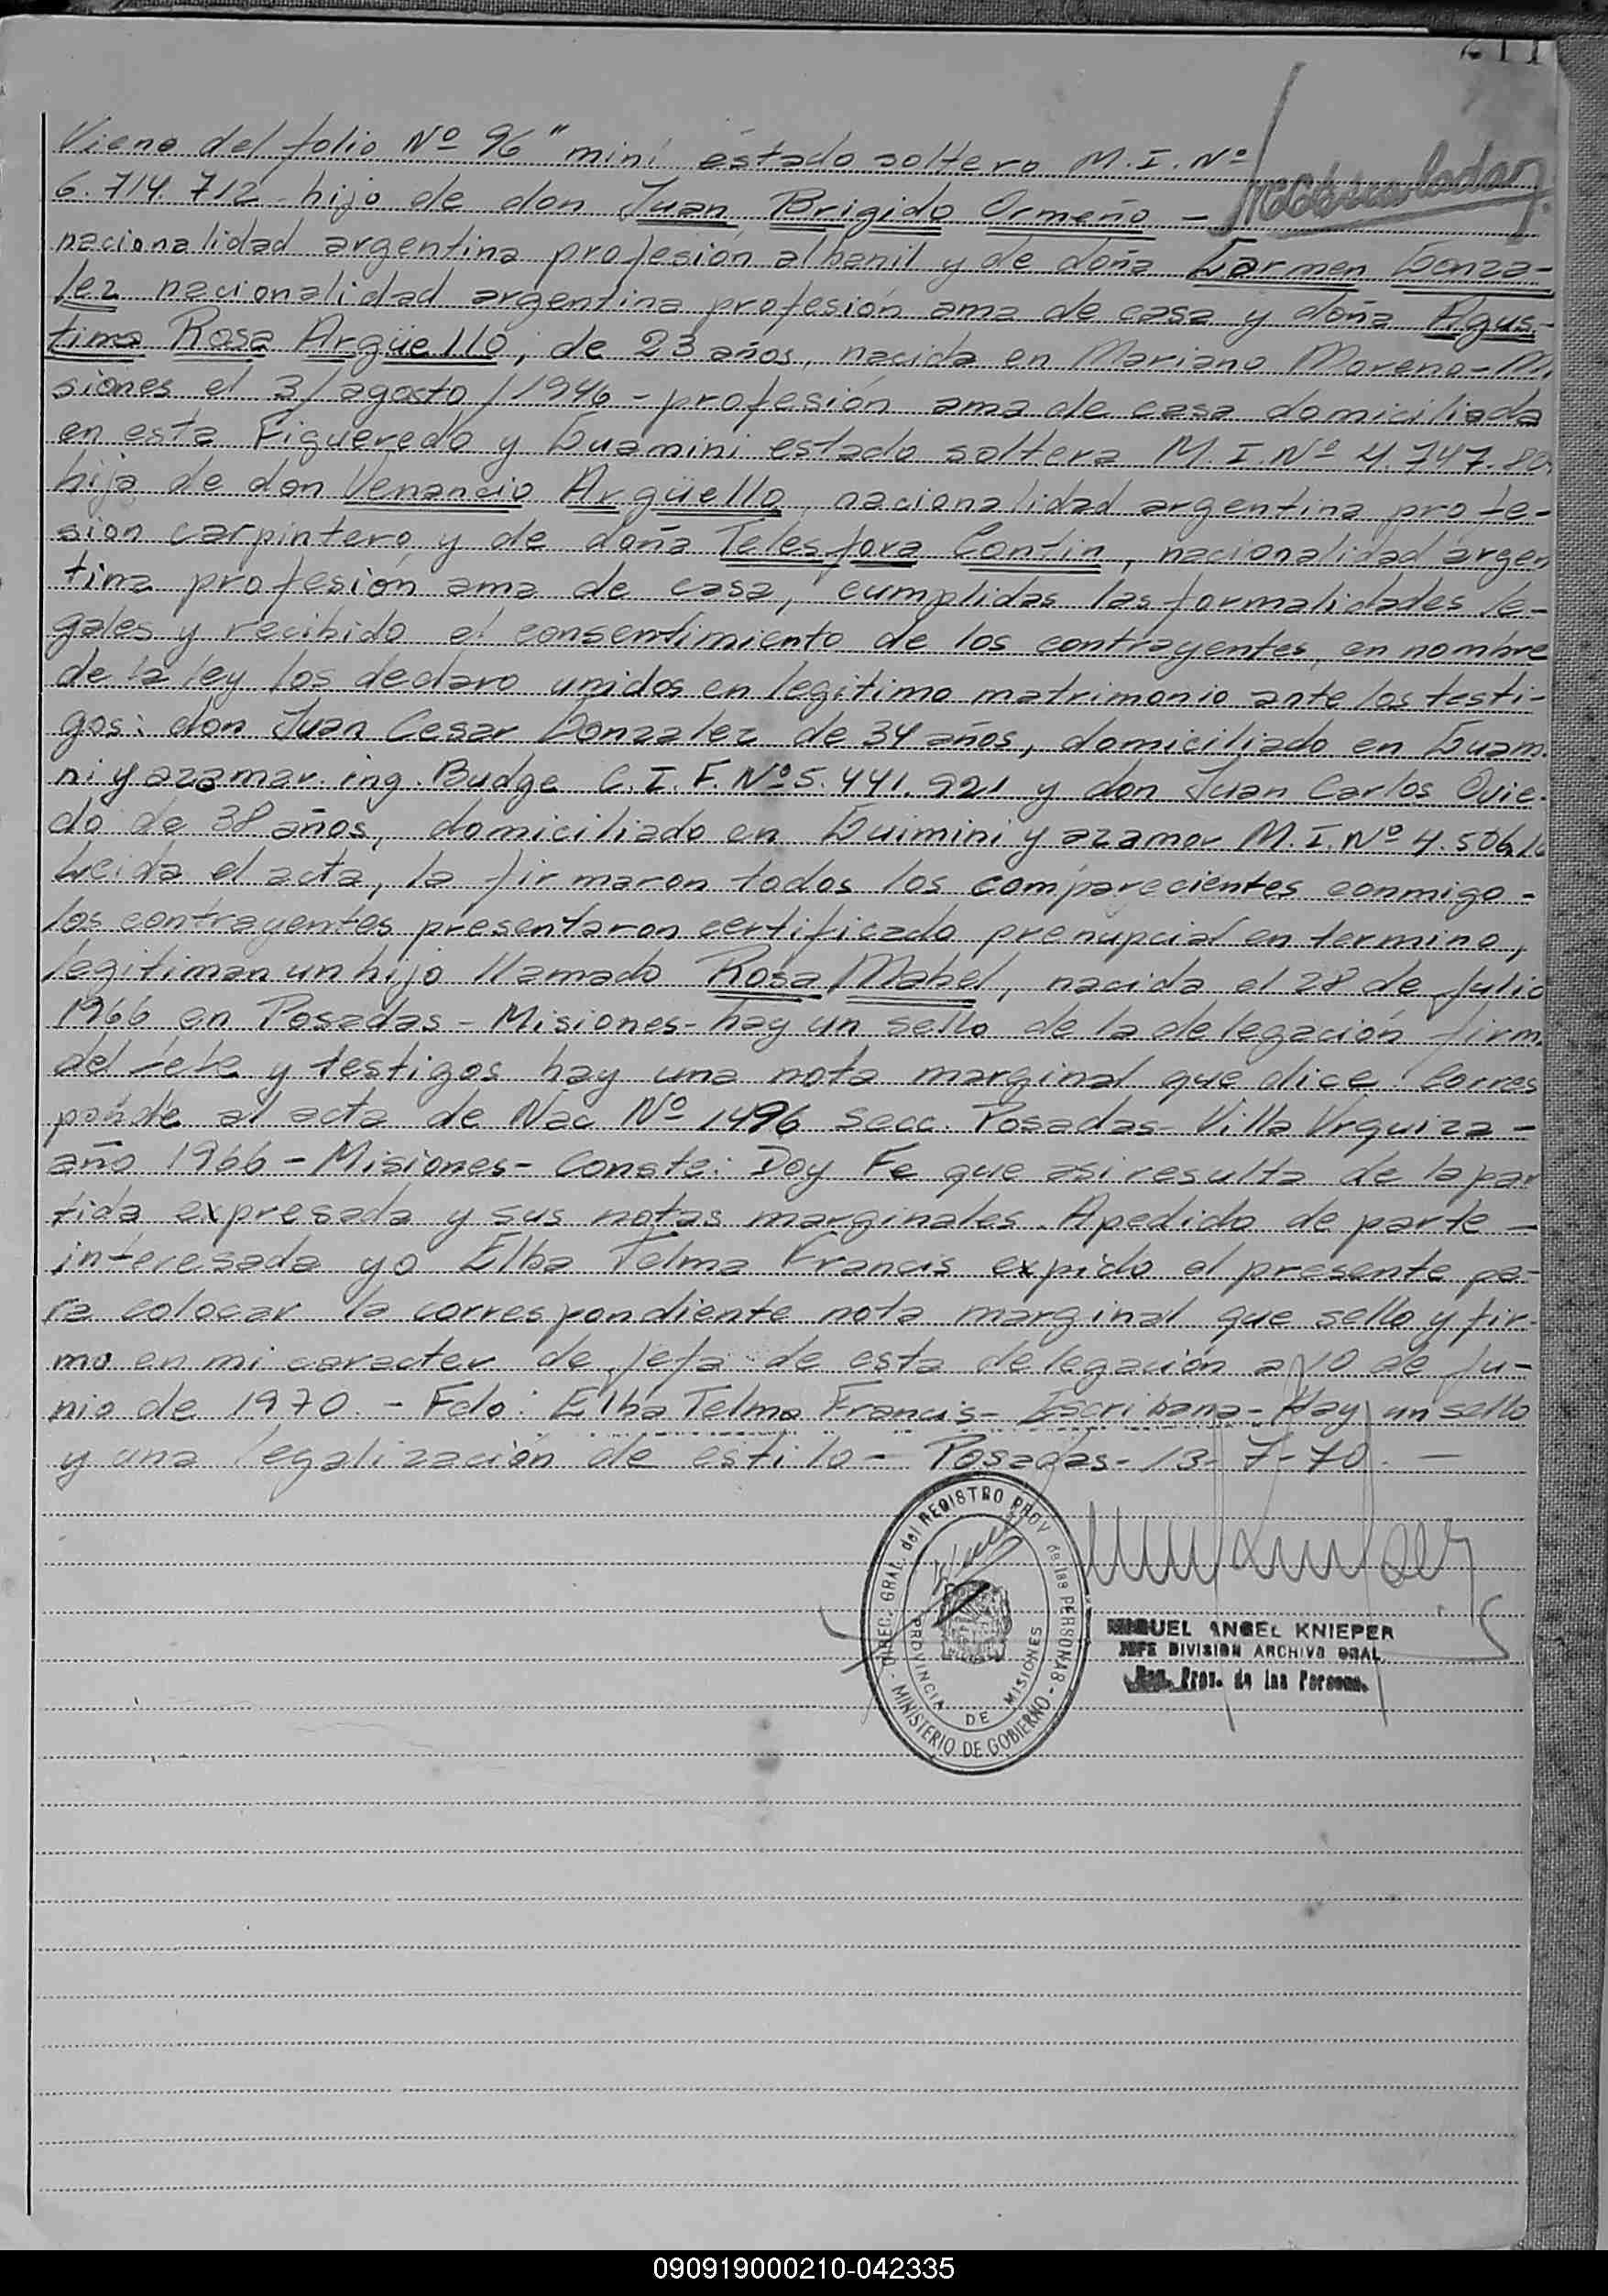 211
Viene del folio Nº 96" mini estado soltero M.I. Nº
6.714.712 hijo de don Juan Brigido Ormeño –
nacionalidad argentina profesión albanil y de doña Carmen Gonza-
lez nacionalidad argentina profesión ama de casa y doña Agus-
tina Rosa Argüello, de 23 años, nacida en Mariano Moreno - Mi
siones el 3/agosto/1946 - profesión ama de casa domiciliada
en esta Figueredo y Guamini estado soltera M.I. Nº 4.747.80
hija de don Venancio Argüello, nacionalidad argentina profe-
sion carpintero y de doña Telesfora Contin, nacionalidad argen
tina profesión ama de casa, cumplidas las formalidades le-
gales y recibido el consentimiento de los contrayentes, en nombre
de la ley los declaro unidos en legitimo matrimonio ante los testi-
gos: don Juan Cesar Gonzalez de 34 años, domiciliado en Guami
ni y azamar ing. Budge C.I.F. Nº 5.441.921 y don Juan Carlos Ovie-
do de 38 años, domiciliado en Guimini y azamor M.I. Nº 4.506.10
Leida el acta, la firmaron todos los comparecientes conmigo -
los contrayentes presentaron certificado prenupcial en termino,
legitiman un hijo llamado Rosa Mabel, nacida el 28 de Julio
1966 en Posadas - Misiones - hay un sello de la delegación firm
del Jefe y testigos hay una nota marginal que dice Corres
ponde al acta de Nac Nº 1496 secc. Posadas - Villa Urquiza -
año 1966 - Misiones - Conste: Doy Fe que asi resulta de la par
tida expresada y sus notas marginales. A pedido de parte -
interesada yo Elba Telma Francis expido el presente pa-
ra colocar la correspondiente nota marginal que sello y fir-
mo en mi caracter de Jefa de esta delegación a 10 de Ju-
nio de 1970. - Fdo: Elba Telma Francis - Escribana - Hay un sello
y una legalización de estilo - Posadas - 13-7-70. —
DIREC. GRAL. del REGISTRO PROV de las PERSONAS - MINISTERIO DE GOBIERNO -
PROVINCIA DE MISIONES
MIGUEL ANGEL KNIEPER
JEFE DIVISION ARCHIVO GRAL.
Reg. Prov. de las Personas.
090919000210-042335